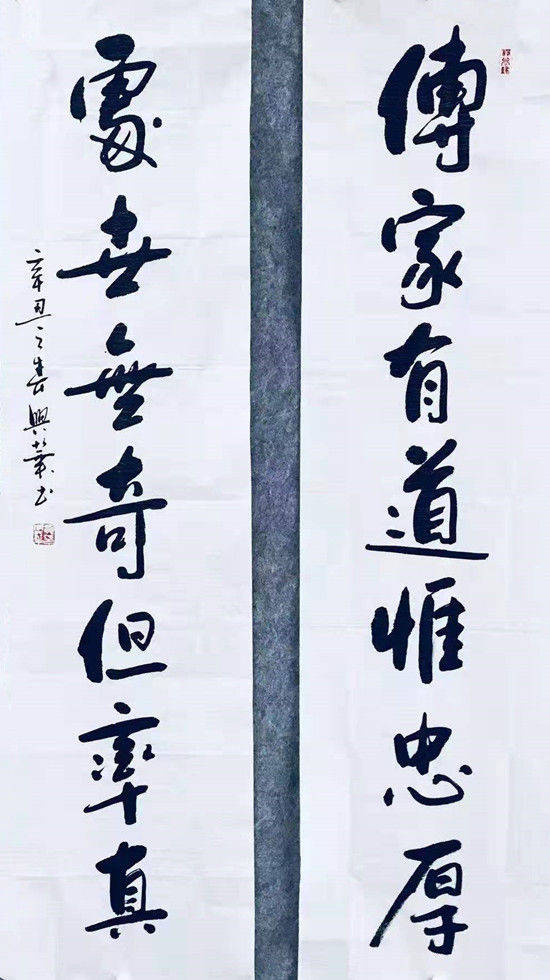 傳家有道惟忠厚
處世無奇但率真
辛丑之春興華书